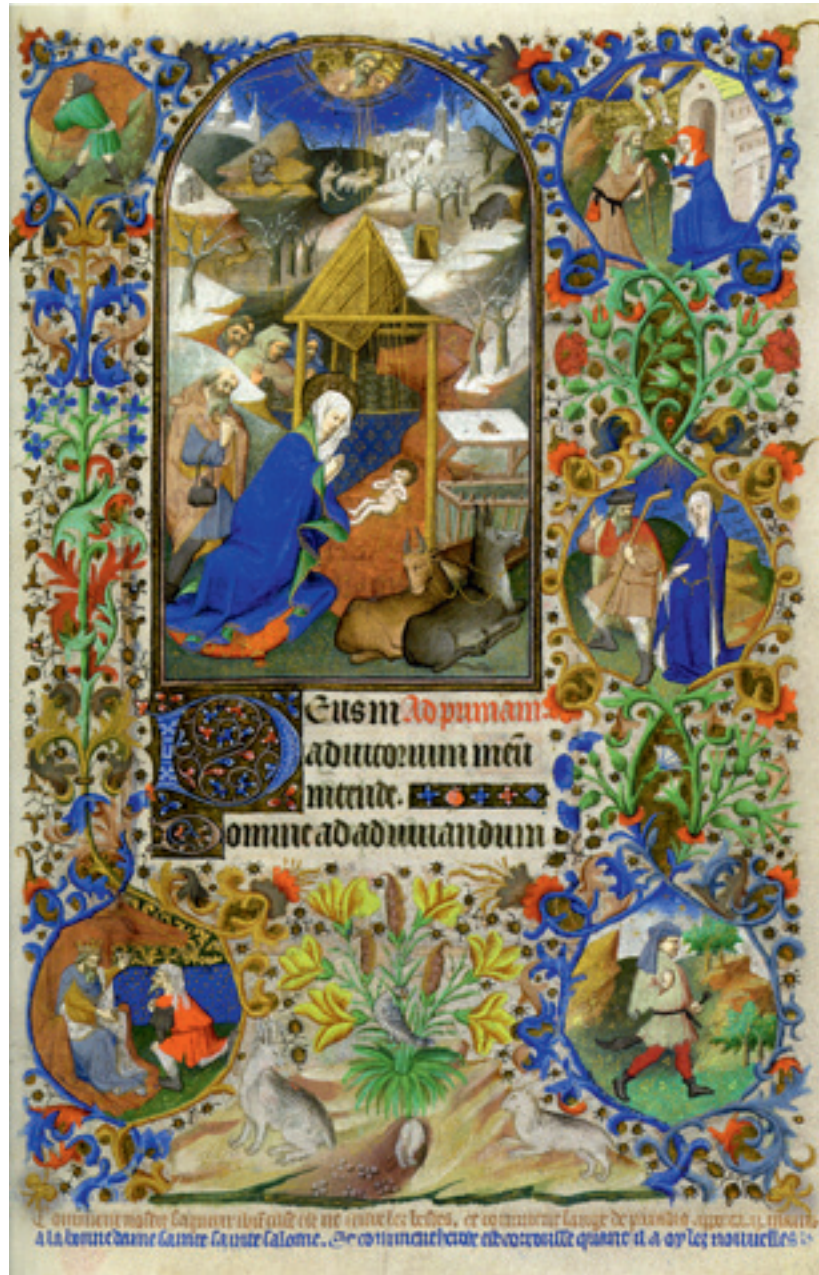 Eus in Ad primam
adiutorium meū
intende.
Domine ad adiuuandum
Comment nostre saigneur est ne entre les bestes, et comment lange de
a la bonne dame sainte salome. Et comment herode est corrousse quant il a oy les nouuelles